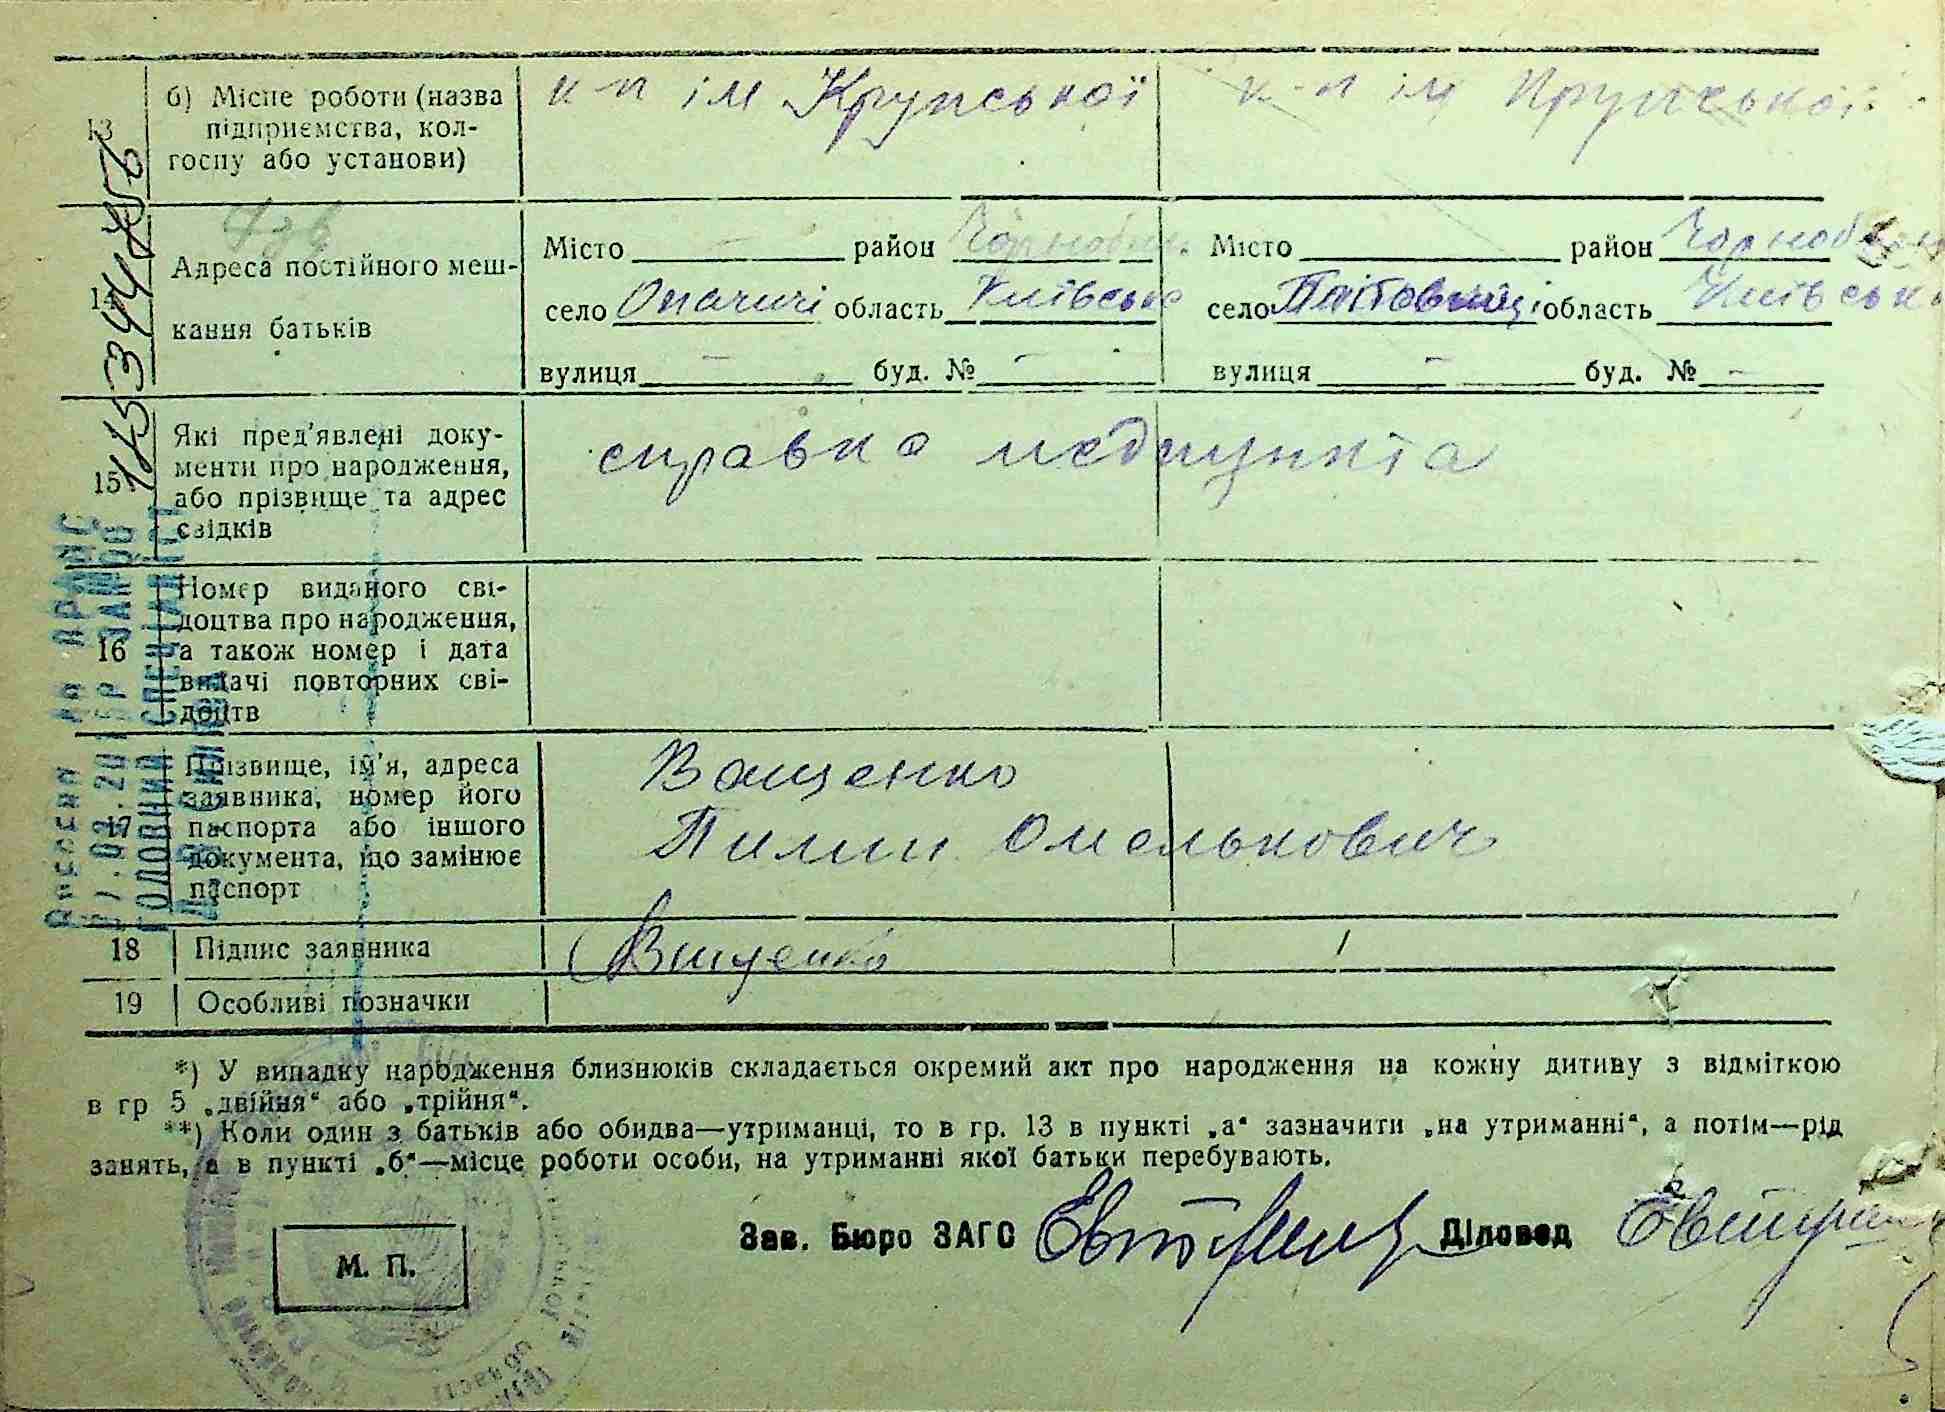 13 б) Місце роботи (назва підприємства, колгоспу або установи)
к-п ім Крупської
к-п ім Крупської
14 Адреса постійного мешкання батьків
Місто район Чорнобил.
село Опачичі область Київськ
вулиця — буд. № —
Місто район Чорноб
село область Київськ
вулиця — буд. № —
15 Які пред'явлені документи про народження, або прізвище та адрес свідків
справка медпункта
16 Номер виданого свідоцтва про народження, а також номер і дата видачі повторних свідоцтв
17 Прізвище, ім'я, адреса заявника, номер його паспорта або іншого документа, що замінює паспорт
Ващенко
Пилип Омелькович
18 Підпис заявника
Ващенко
19 Особливі позначки
*) У випадку народження близнюків складається окремий акт про народження на кожну дитину з відміткою
в гр 5 „двійня“ або „трійня“.
**) Коли один з батьків або обидва—утриманці, то в гр. 13 в пункті „а“ зазначити „на утриманні“, а потім—рід
занять, а в пункті „б“—місце роботи особи, на утриманні якої батьки перебувають.
Зав. Бюро ЗАГС Діловод
М. П.
ГОЛОВНИЙ СПЕЦІАЛІСТ